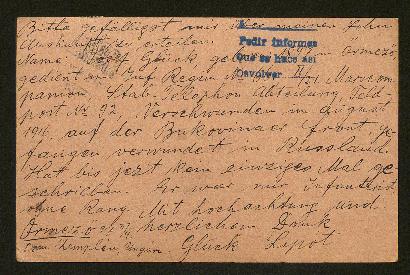 Bitte gefälligst mir über meinen Sohn
Auskunft zu erteilen
Pedir informes
Que se hace así
Devolver
Name: Josef Glück geb. Örmező
gedient Inf. Regim No Marschkom
panion Stab. Telephon Abteilung, Feld-
post No 92, Verschwunden im August
1916, auf der Bukovinaer Front, ge-
fangen verwundet in Russland.
Hat bis jezt kein einziges Mal ge-
schrieben. Er war nur infanterist
ohne Rang Mit hochachtung und
Örmező herzlichem Dank
Com Zemplén, Ungarn Glück Lipot